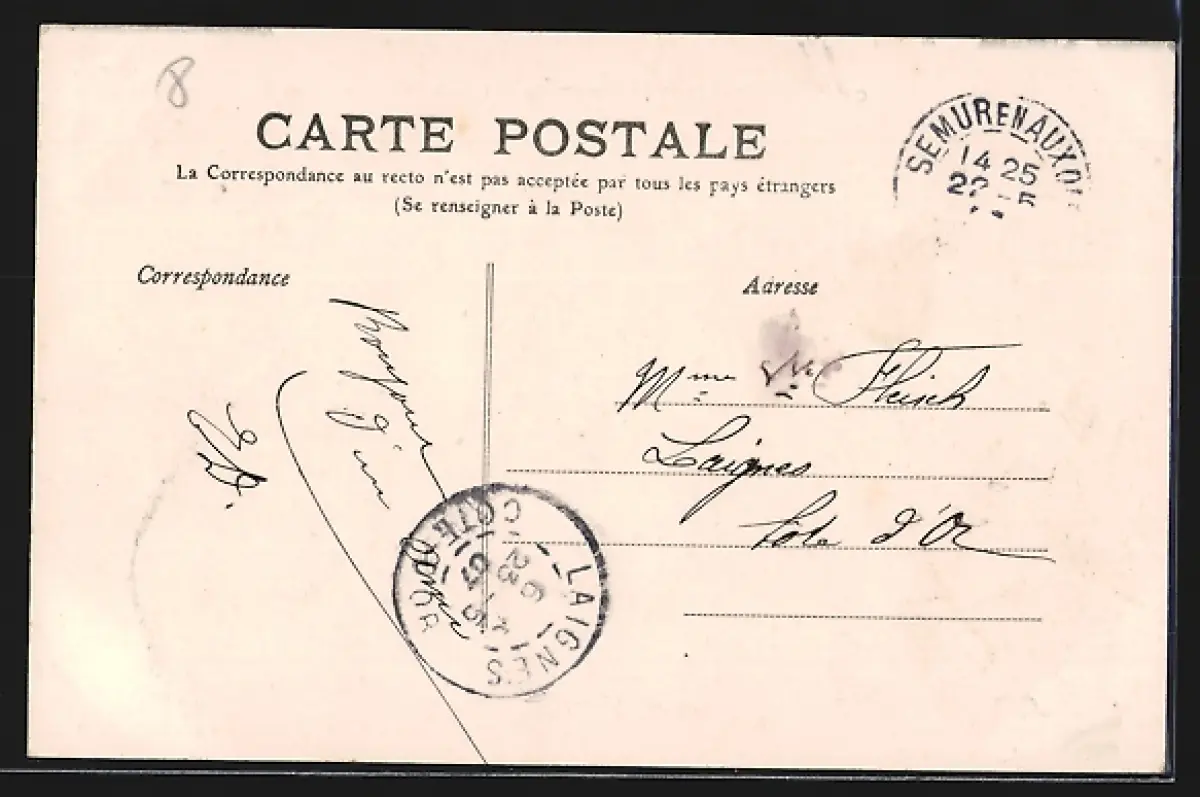 8
CARTE POSTALE
La Correspondance au recto n'est pas acceptée par tous les pays étrangers
(Se renseigner à la Poste)
SEMUR EN AUXOIS
14 25
Correspondance
Adresse
Bonjour
d'un
Mme Vve Fleisch
Laignes
Côte d'Or
LAIGNES
CÔTE D'OR
6
23 5
07